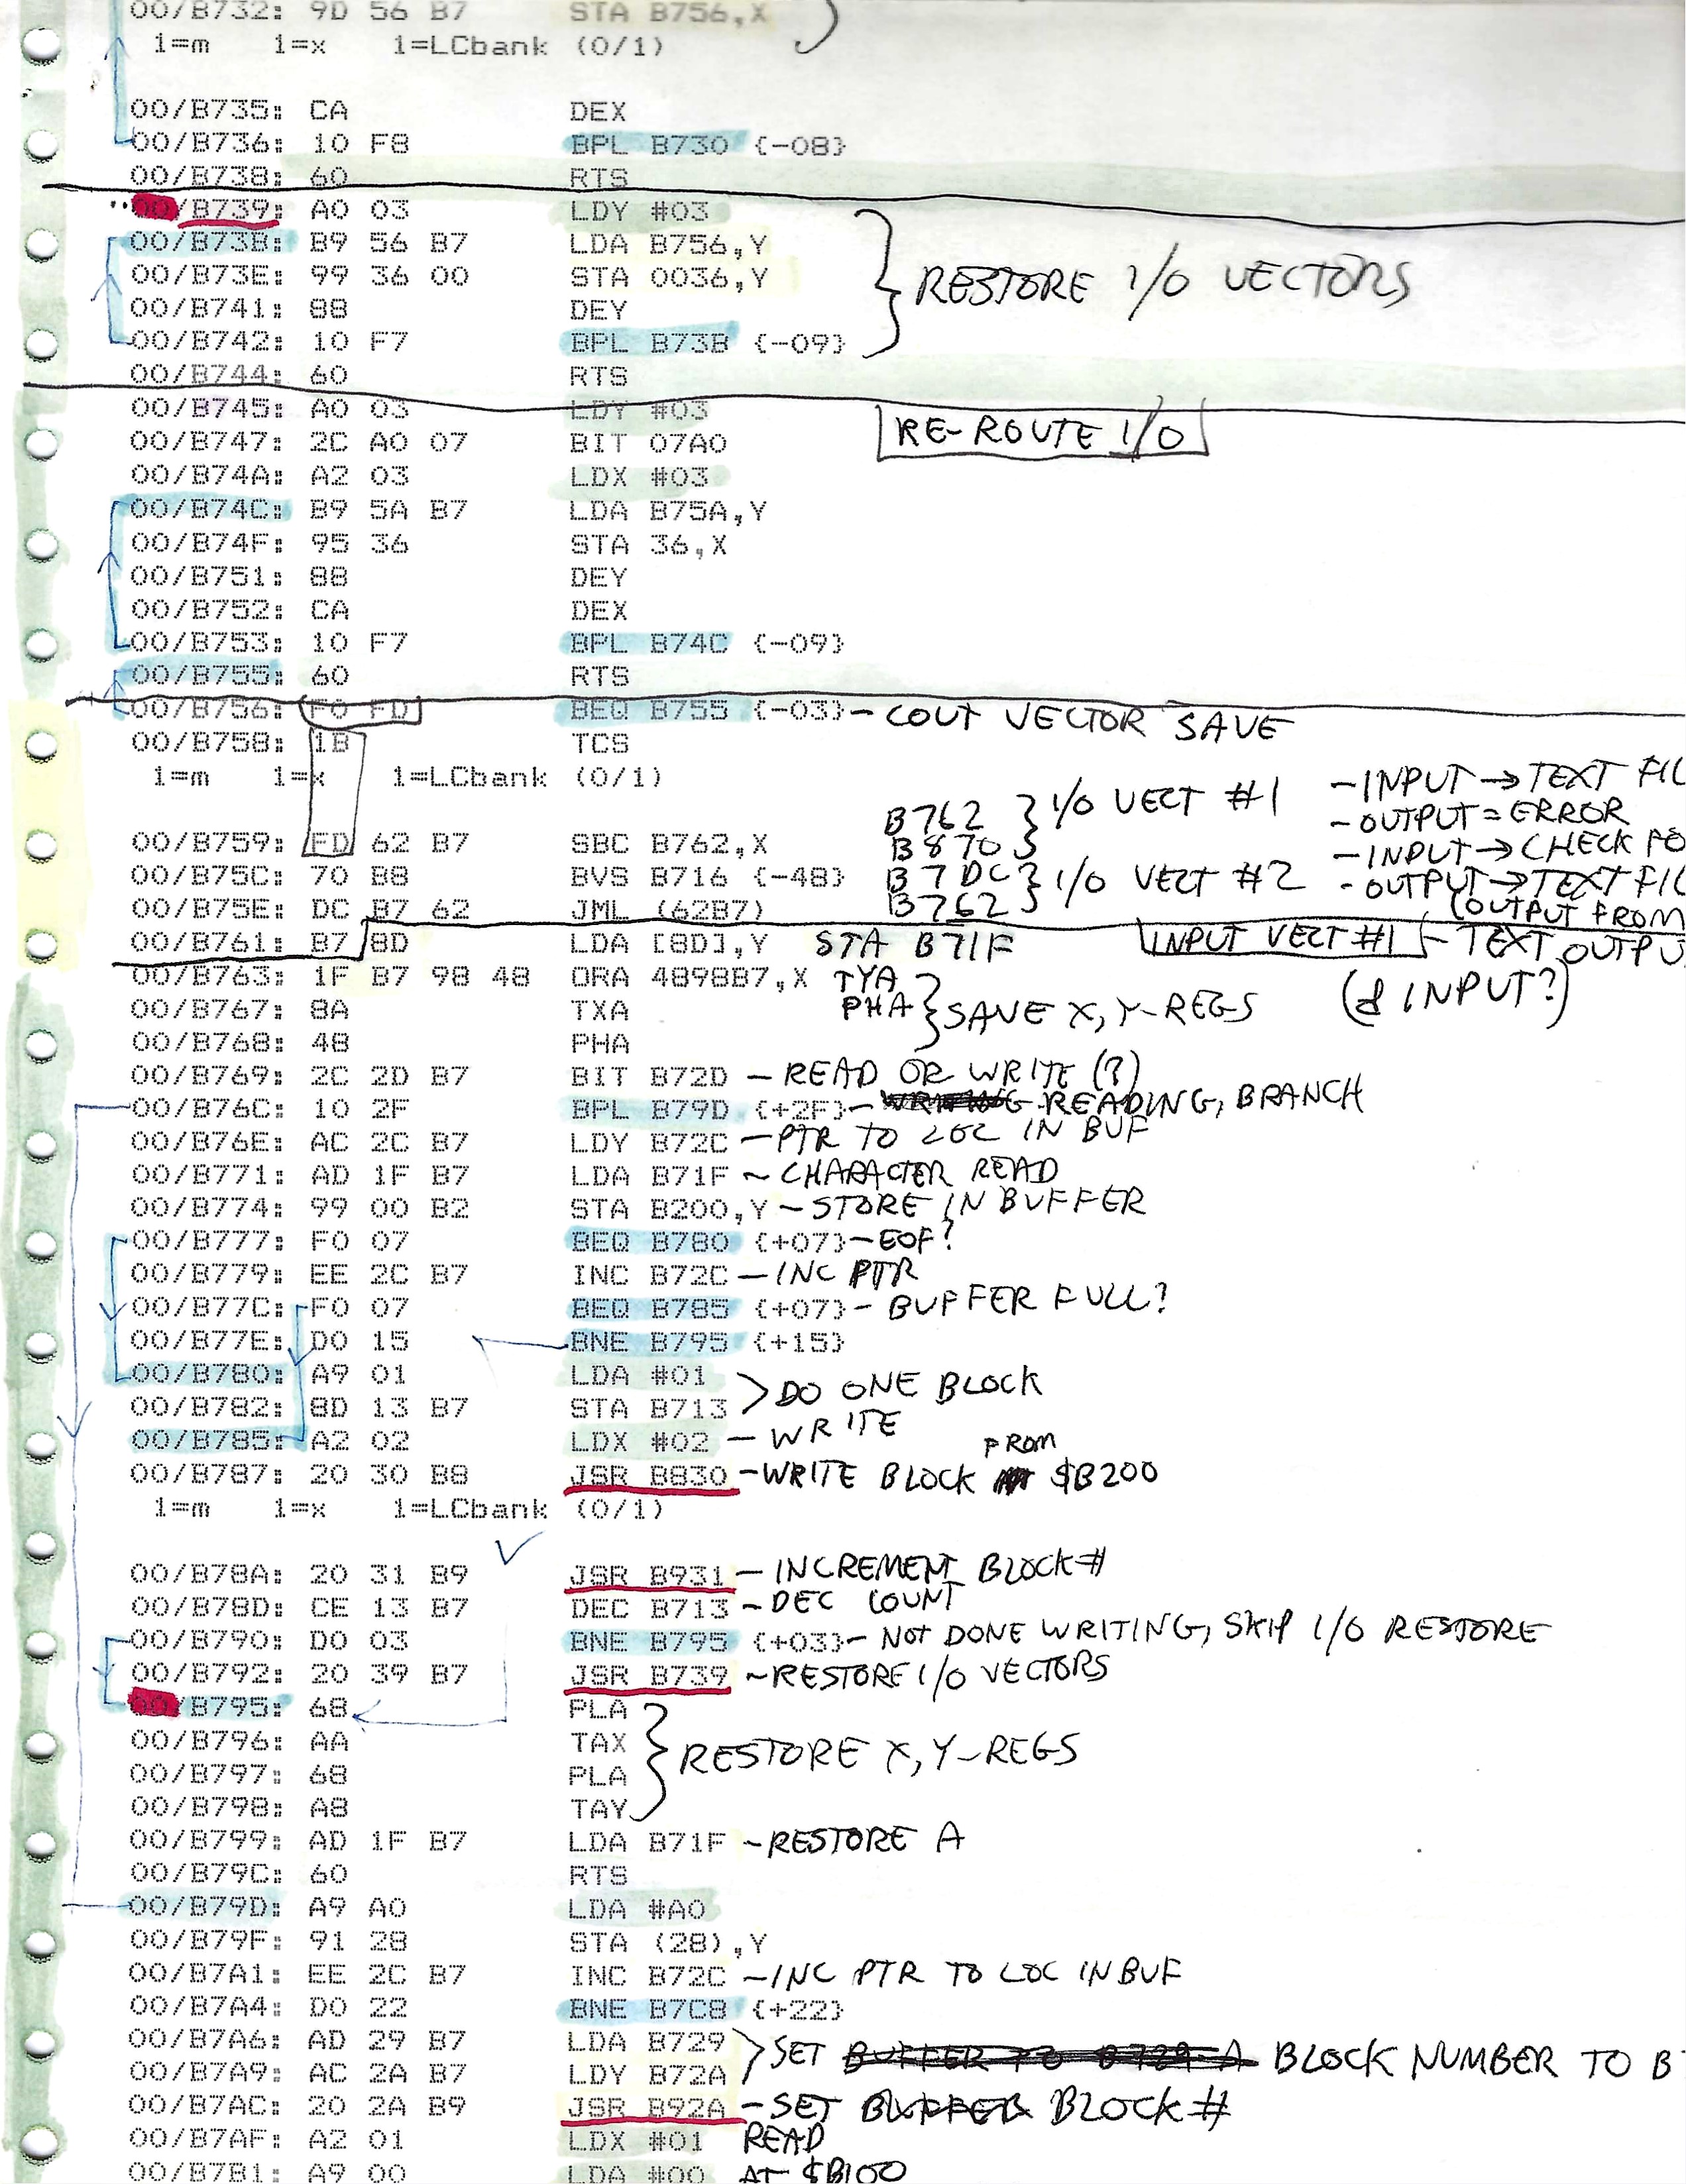 00/B732: 9D 56 B7 STA B756,X
1=m 1=x 1=LCbank (0/1)
00/B735: CA DEX
00/B736: 10 F8 BPL B730 {-08}
00/B738: 60 RTS
00/B739: A0 03 LDY #03
00/B73B: B9 56 B7 LDA B756,Y
00/B73E: 99 36 00 STA 0036,Y } RESTORE I/O VECTORS
00/B741: 88 DEY
00/B742: 10 F7 BPL B73B {-09}
00/B744: 60 RTS
00/B745: A0 03 LDY #03
00/B747: 2C A0 07 BIT 07A0 RE-ROUTE I/O
00/B74A: A2 03 LDX #03
00/B74C: B9 5A B7 LDA B75A,Y
00/B74F: 95 36 STA 36,X
00/B751: 88 DEY
00/B752: CA DEX
00/B753: 10 F7 BPL B74C {-09}
00/B755: 60 RTS
00/B756: F0 FD BEQ B755 {-03} - COUT VECTOR SAVE
00/B758: 1B TCS
1=m 1=x 1=LCbank (0/1) - INPUT → TEXT FIL
B762 } I/O VECT #1 - OUTPUT = ERROR
00/B759: FD 62 B7 SBC B762,X B870 - INPUT → CHECK FO
00/B75C: 70 B8 BVS B716 {-48} B7DC } I/O VECT #2 - OUTPUT → TEXT FIL
00/B75E: DC B7 62 JML (62B7) B762 (OUTPUT FROM
00/B761: B7 8D LDA [8D],Y STA B71F INPUT VECT #1 - TEXT OUTPU
00/B763: 1F B7 98 48 ORA 4898B7,X TYA (& INPUT?)
00/B767: 8A TXA PHA } SAVE X, Y-REGS
00/B768: 48 PHA
00/B769: 2C 2D B7 BIT B72D - READ OR WRITE (?)
00/B76C: 10 2F BPL B79D {+2F} - READING, BRANCH
00/B76E: AC 2C B7 LDY B72C - PTR TO LOC IN BUF
00/B771: AD 1F B7 LDA B71F ~ CHARACTER READ
00/B774: 99 00 B2 STA B200,Y - STORE IN BUFFER
00/B777: F0 07 BEQ B780 {+07} - EOF?
00/B779: EE 2C B7 INC B72C - INC PTR
00/B77C: F0 07 BEQ B785 {+07} - BUFFER FULL?
00/B77E: D0 15 BNE B795 {+15}
00/B780: A9 01 LDA #01
00/B782: 8D 13 B7 STA B713 > DO ONE BLOCK
00/B785: A2 02 LDX #02 - WRITE
00/B787: 20 30 B8 JSR B830 - WRITE BLOCK FROM $B200
1=m 1=x 1=LCbank (0/1)
00/B78A: 20 31 B9 JSR B931 - INCREMENT BLOCK #
00/B78D: CE 13 B7 DEC B713 - DEC COUNT
00/B790: D0 03 BNE B795 {+03} - NOT DONE WRITING, SKIP I/O RESTORE
00/B792: 20 39 B7 JSR B739 ~ RESTORE I/O VECTORS
00/B795: 68 PLA
00/B796: AA TAX } RESTORE X, Y-REGS
00/B797: 68 PLA
00/B798: A8 TAY
00/B799: AD 1F B7 LDA B71F - RESTORE A
00/B79C: 60 RTS
00/B79D: A9 A0 LDA #A0
00/B79F: 91 28 STA (28),Y
00/B7A1: EE 2C B7 INC B72C - INC PTR TO LOC IN BUF
00/B7A4: D0 22 BNE B7C8 {+22}
00/B7A6: AD 29 B7 LDA B729 > SET BUFFER TO B729-A BLOCK NUMBER TO B
00/B7A9: AC 2A B7 LDY B72A
00/B7AC: 20 2A B9 JSR B92A - SET BUFFER BLOCK #
00/B7AF: A2 01 LDX #01 READ
00/B7B1: A9 00 LDA #00 AT $B100